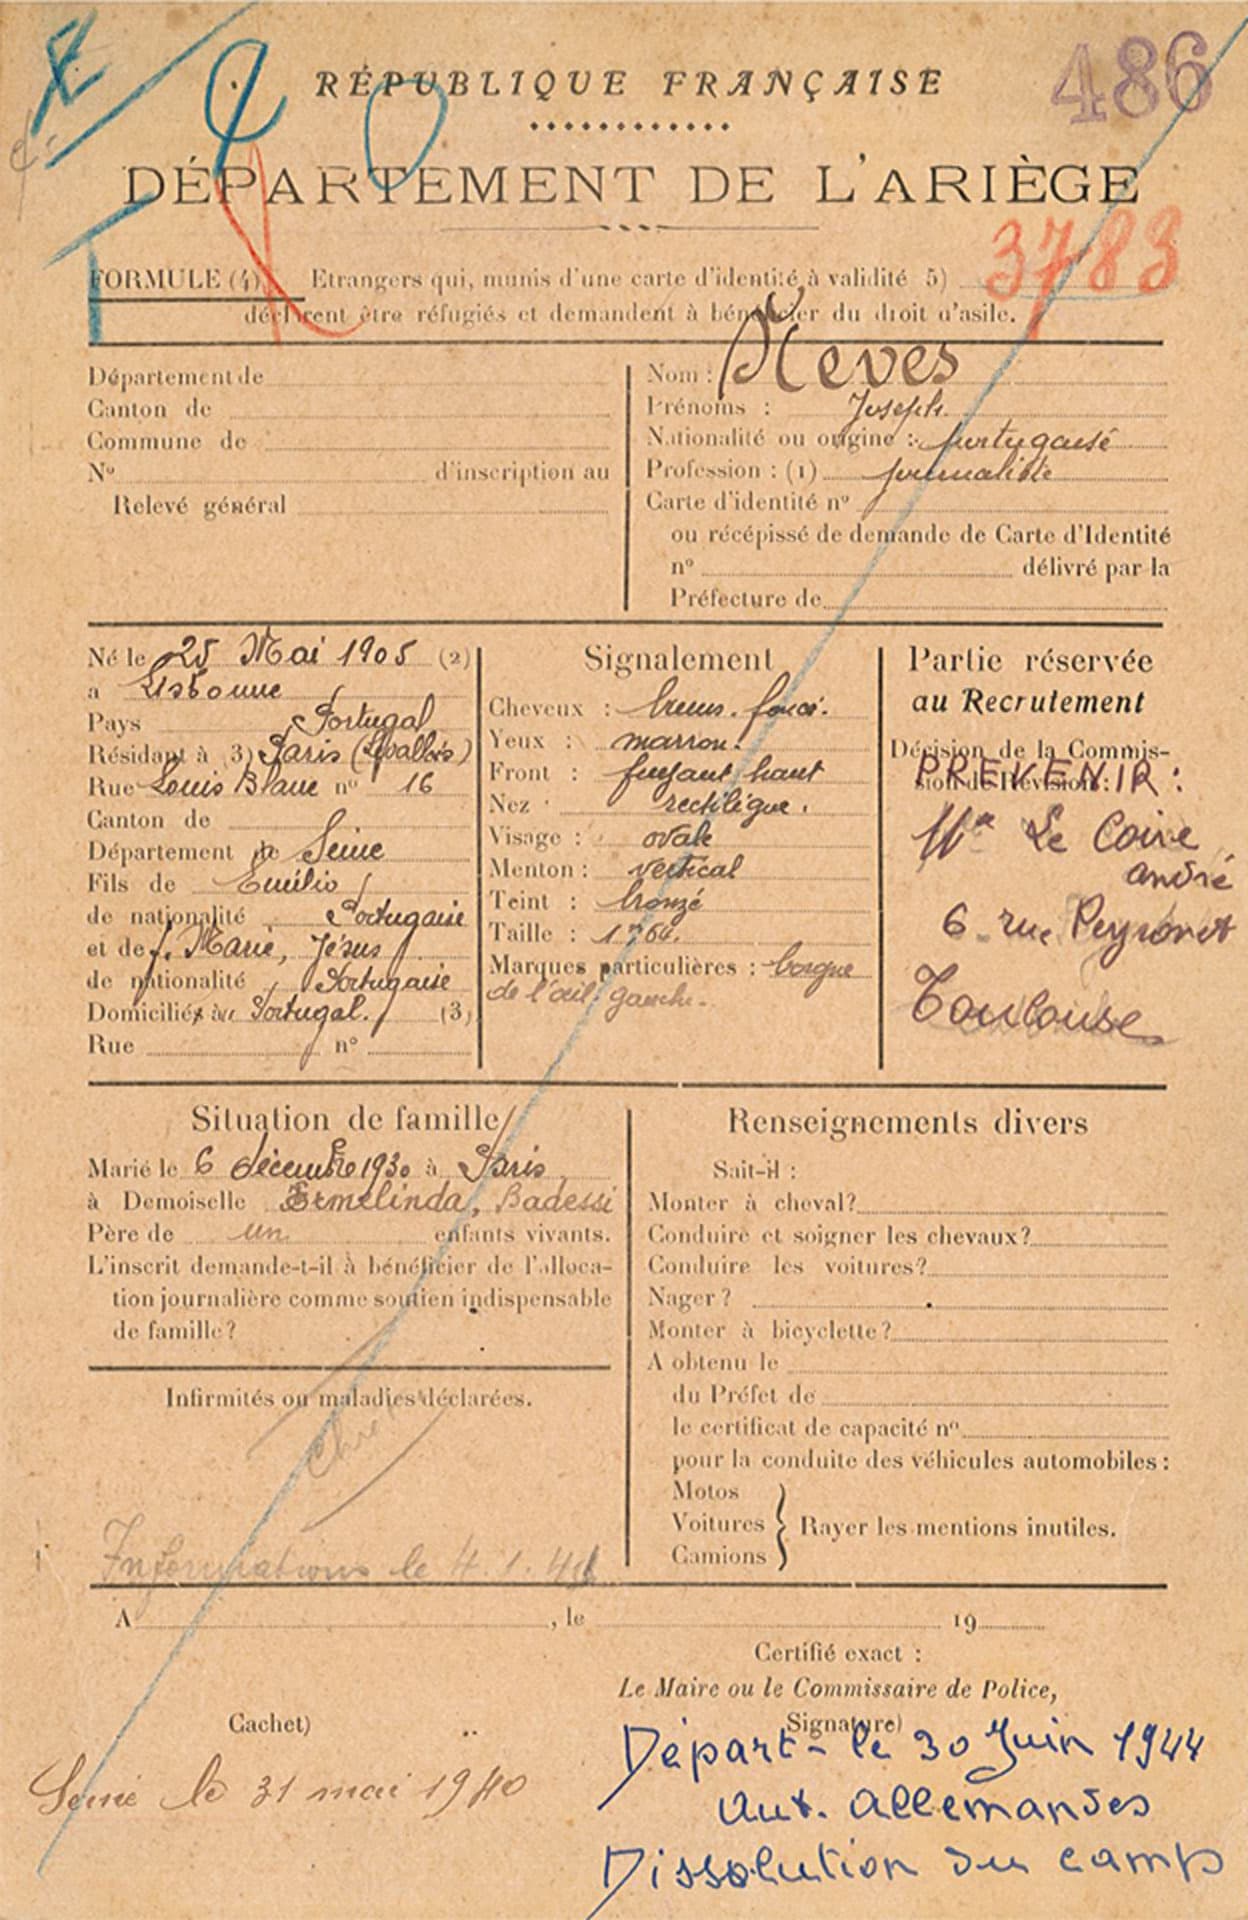 486
RÉPUBLIQUE FRANÇAISE
DÉPARTEMENT DE L'ARIÈGE
3783
FORMULE (4) Etrangers qui, munis d'une carte d'identité à validité 5)
déclarent être réfugiés et demandent à bénéficier du droit d'asile.
Département de
Canton de
Commune de
No d'inscription au
Relevé général
Nom : Neves
Prénoms : Joseph
Nationalité ou origine : portugaise
Profession : (1) journaliste
Carte d'identité no
ou récépissé de demande de Carte d'Identité
no délivré par la
Préfecture de
Né le 25 Mai 1905 (2)
a Lisbonne
Pays Portugal
Résidant à 3) Paris (Levallois)
Rue Louis Blanc no 16
Canton de
Département de Seine
Fils de Emilio
de nationalité Portugaise
et de Marie, Jésus
de nationalité Portugaise
Domiciliés au Portugal. (3)
Rue no
Signalement
Cheveux : bruns. foncé.
Yeux : marron.
Front : fuyant haut
Nez rectiligne.
Visage : ovale
Menton : vertical
Teint : bronzé
Taille : 1m64.
Marques particulières : borgne
de l'œil gauche.
Partie réservée
au Recrutement
Décision de la Commis-
sion de Révision :
PREVENIR :
Le Coire
andré
6 rue Peyronet
Toulouse
Situation de famille
Marié le 6 décembre 1930 à Paris
à Demoiselle Ermelinda, Badessi
Père de un enfants vivants.
L'inscrit demande-t-il à bénéficier de l'alloca-
tion journalière comme soutien indispensable
de famille ?
Infirmités ou maladies déclarées.
Informations le 4.1.41
Renseignements divers
Sait-il :
Monter à cheval ?
Conduire et soigner les chevaux ?
Conduire les voitures ?
Nager ?
Monter à bicyclette ?
A obtenu le
du Préfet de
le certificat de capacité no
pour la conduite des véhicules automobiles :
Motos
Voitures } Rayer les mentions inutiles.
Camions
A , le 19
Certifié exact :
Le Maire ou le Commissaire de Police,
Cachet) Signature)
le 31 mai 1940
Départ - le 30 Juin 1944
aux. allemandes
Dissolution du camp